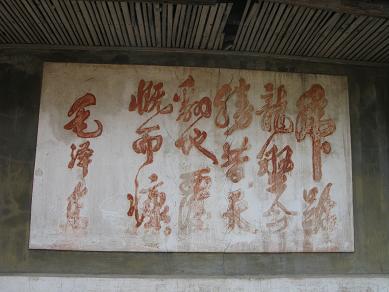 虎踞
龍盤今
勝昔天
翻地覆
慨而慷
毛泽东